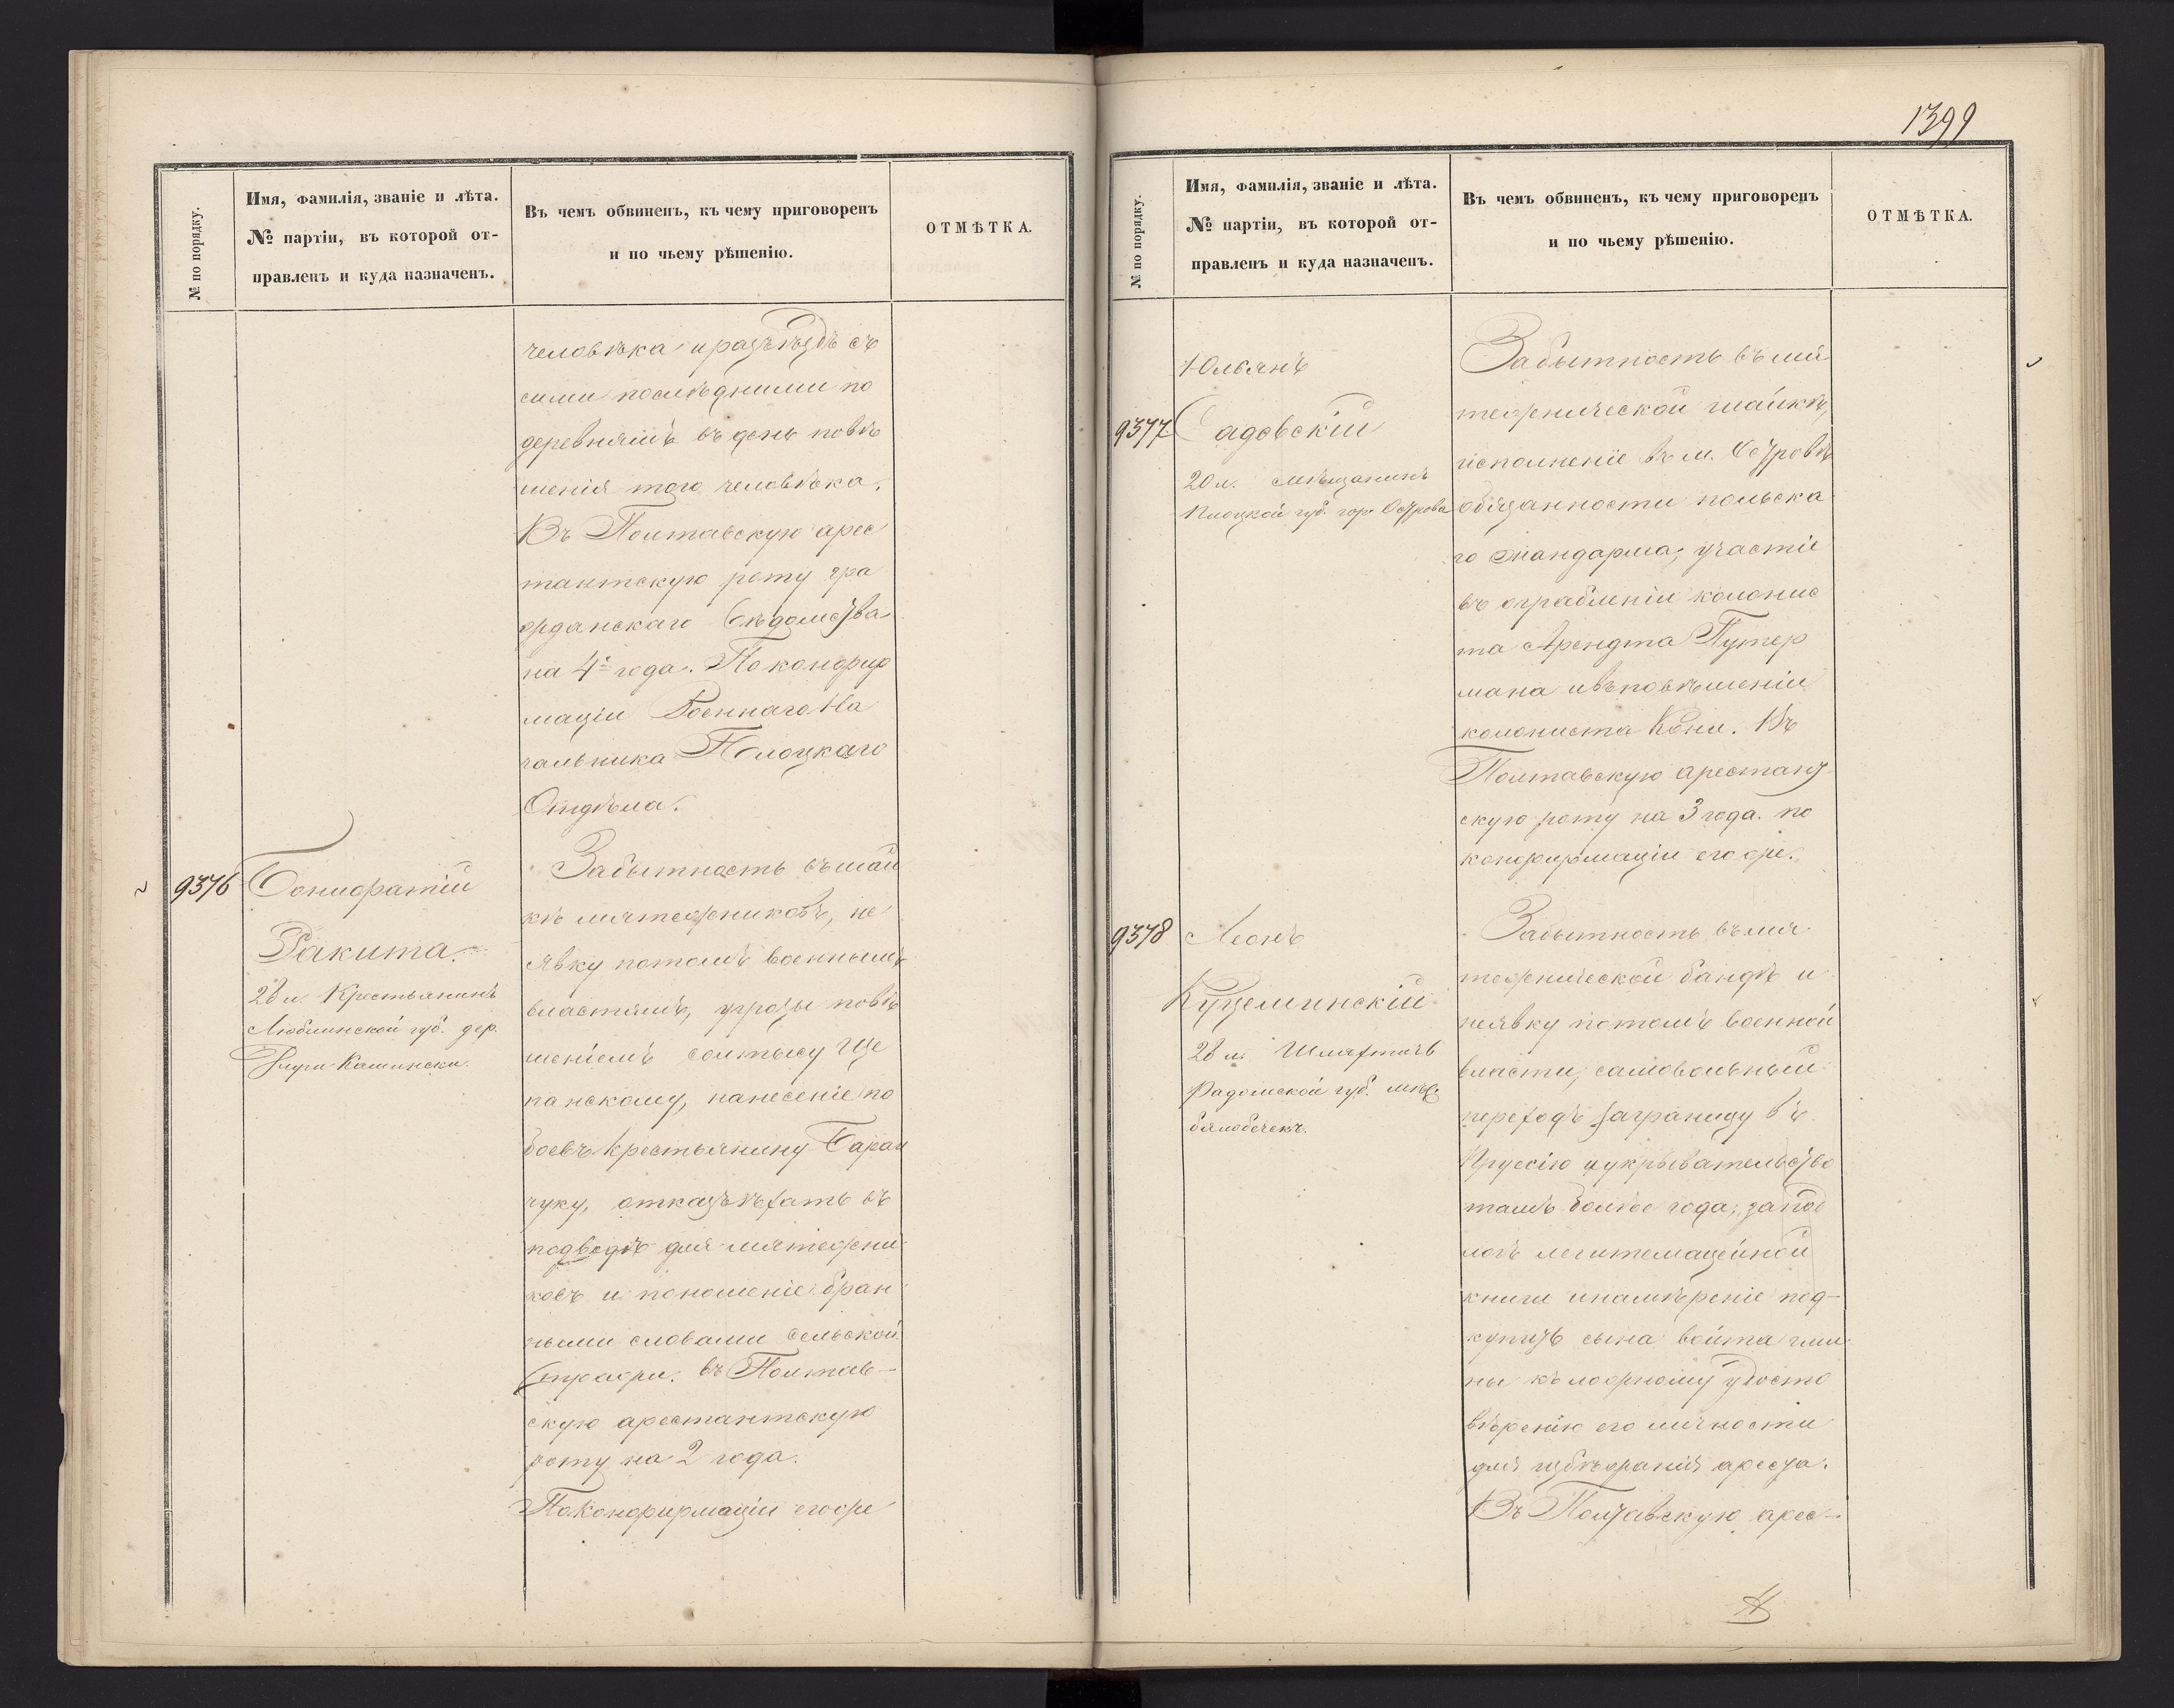 № по порядку.
Имя, фамилія, званіе и лѣта.
№ партіи, въ которой от-
правленъ и куда назначенъ.
Въ чемъ обвиненъ, къ чему приговоренъ
и по чьему рѣшенію.
ОТМѢТКА.
человѣка и разъѣздъ съ
сими послѣдними по
деревнямъ въ день повѣ
шенія того человѣка.
Въ Полтавскую арес
тантскую роту гра
жданскаго вѣдомства
на 4 года. По конфир
маціи Военнаго На
чальника Плоцкаго
Отдѣла.
9376
Бонифатій
Ракита.
28 л. Крестьянинъ
Люблинской губ. дер.
За бытность въ шай
кѣ мятежниковъ, не
явку потомъ военнымъ
властямъ, угрозы повѣ
шеніемъ солтысу Ще
панскому, нанесеніе по
боевъ крестьянину Баран
чуку, отказъ ѣхать въ
подводѣ для мятежни
ковъ и поношеніе бран
ными словами сельской
стражи. въ Полтав-
скую арестантскую
роту на 2 года.
По конфирмаціи егоже
1399
№ по порядку.
Имя, фамилія, званіе и лѣта.
№ партіи, въ которой от-
правленъ и куда назначенъ.
Въ чемъ обвиненъ, къ чему приговоренъ
и по чьему рѣшенію.
ОТМѢТКА.
Юльянъ
9377 Садовскій
20 л. мѣщанинъ
Плоцкой губ. гор. Острова
За бытность въ мя
тежнической шайкѣ,
исполненіе въ м. Островѣ
обязанности польска
го жандарма, участіе
въ ограбленіи колонис
та Арендта Путер
мана и въ повѣшеніи
колониста Кони. Въ
Полтавскую арестант
скую роту на 3 года. по
конфирмаціи егоже.
9378 Леонъ
28 л. Шляхтичъ
Радомской губ. мѣс
За бытность въ мя
тежнической бандѣ и
неявку потомъ военной
власти, самовольный
переходъ заграницу въ
Пруссію и укрывательство
тамъ болѣе года, за под
логъ легитемацейной
книги и намѣреніе под-
купить сына войта гми
ны къ ложному удосто
вѣренію его личности
для избѣжанія ареста.
Въ Полтавскую арес-